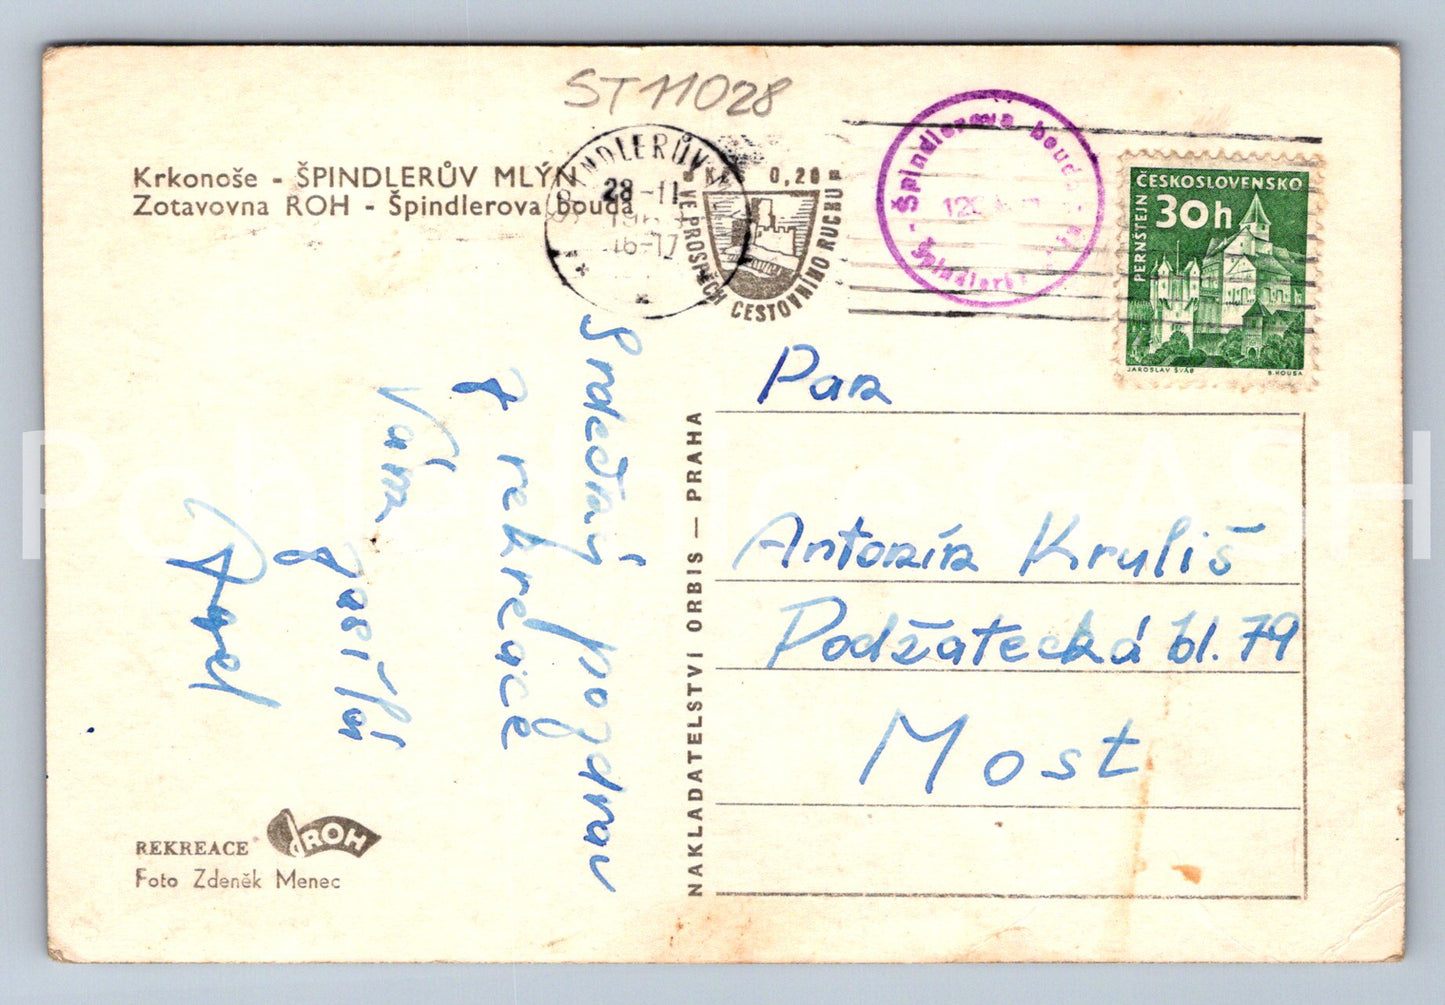 ST11028
Krkonoše - ŠPINDLERŮV MLÝN
Zotavovna ROH - Špindlerova bouda
ŠPINDLERŮV
28-11
16-17
Kčs 0,20
VE PROSPĚCH CESTOVNÍHO RUCHU
Špindlerova bouda
120
Špindler
ČESKOSLOVENSKO
30h
PERNŠTEJN
JAROSLAV ŠVÁB
Pan
Antonín Kruliš
Podžatecká bl. 79
Most
NAKLADATELSTVÍ ORBIS — PRAHA
Srdečný pozdrav
z rekreace
Vám
zasílá
Pavel
REKREACE ROH
Foto Zdeněk Menec
Pohlednice CASH